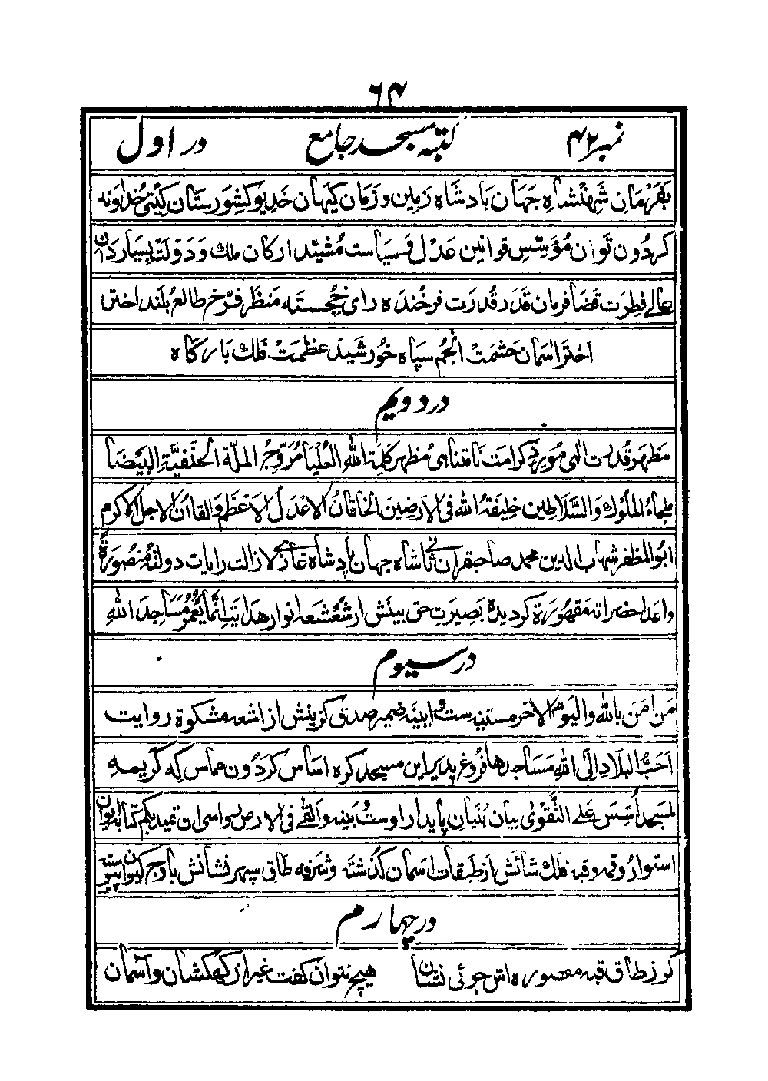 ۶۴
نمبر ۴۲ کتبہ مسجد جامع در اول
بفرمان شہنشاہ جہان بادشاہ زمین و زمان کیہان خدیو کشورستان گیتی خداوند
گردون توان مؤسس قوانین عدل و سیاست مشید ارکان ملک و دولت بسیاردان
عالے فطرت قضا فرمان قدر قدرت فرخندہ رای خجستہ منظر فرخ طالع بلند اختر
اختر آسمان حشمت انجم سپاہ خورشید عظمت فلک بارگاہ
در دویم
مظہر قدرت الٰہی مورد کرامت نامتناہی مظہر کلمۃ اللہ العلیا مروج الملۃ الحنفیۃ البیضا
ملجاء الملوک والسلاطین خلیفۃ اللہ فی الارضین الخاقان الاعدل الاعظم والقاآن الاجل الاکرم
ابوالمظفر شہاب الدین محمد صاحبقران ثانی شاہ جہان بادشاہ غازے لازالت رایات دولتہ منصورۃ
واعداء حضراتہ مقہورۃ کردیدہ بصیرت حق بینش از شعشعہ انوار ہدایت انما یعمر مساجد اللہ
در سیوم
من امن باللہ والیوم الاخر مستنیر ست و ایینہ ضمیر صدق گزینش از اشعہ مشکوۃ روایت
احب البلاد الی اللہ مساجدہا فروغ پذیر این مسجد کرہ اساس گردون مماس کہ کریمہ
لمسجد اسس علی التقوی بیان بنیان پایدار اوست و بینہ والقی فی الارض رواسی ان تمید بکم کتابہ ایوان
استوار و قمہ و قبہ فلک شانش از طبقات آسمان گذشتہ و شرفہ طاق سپہر نشانش باوج کیوان پیوستہ
در چہارم
گر ز طاق قبہ مقصورہ اش جوئی نشان ہیچ نتوان گفت غیر از کہکشان و آسمان